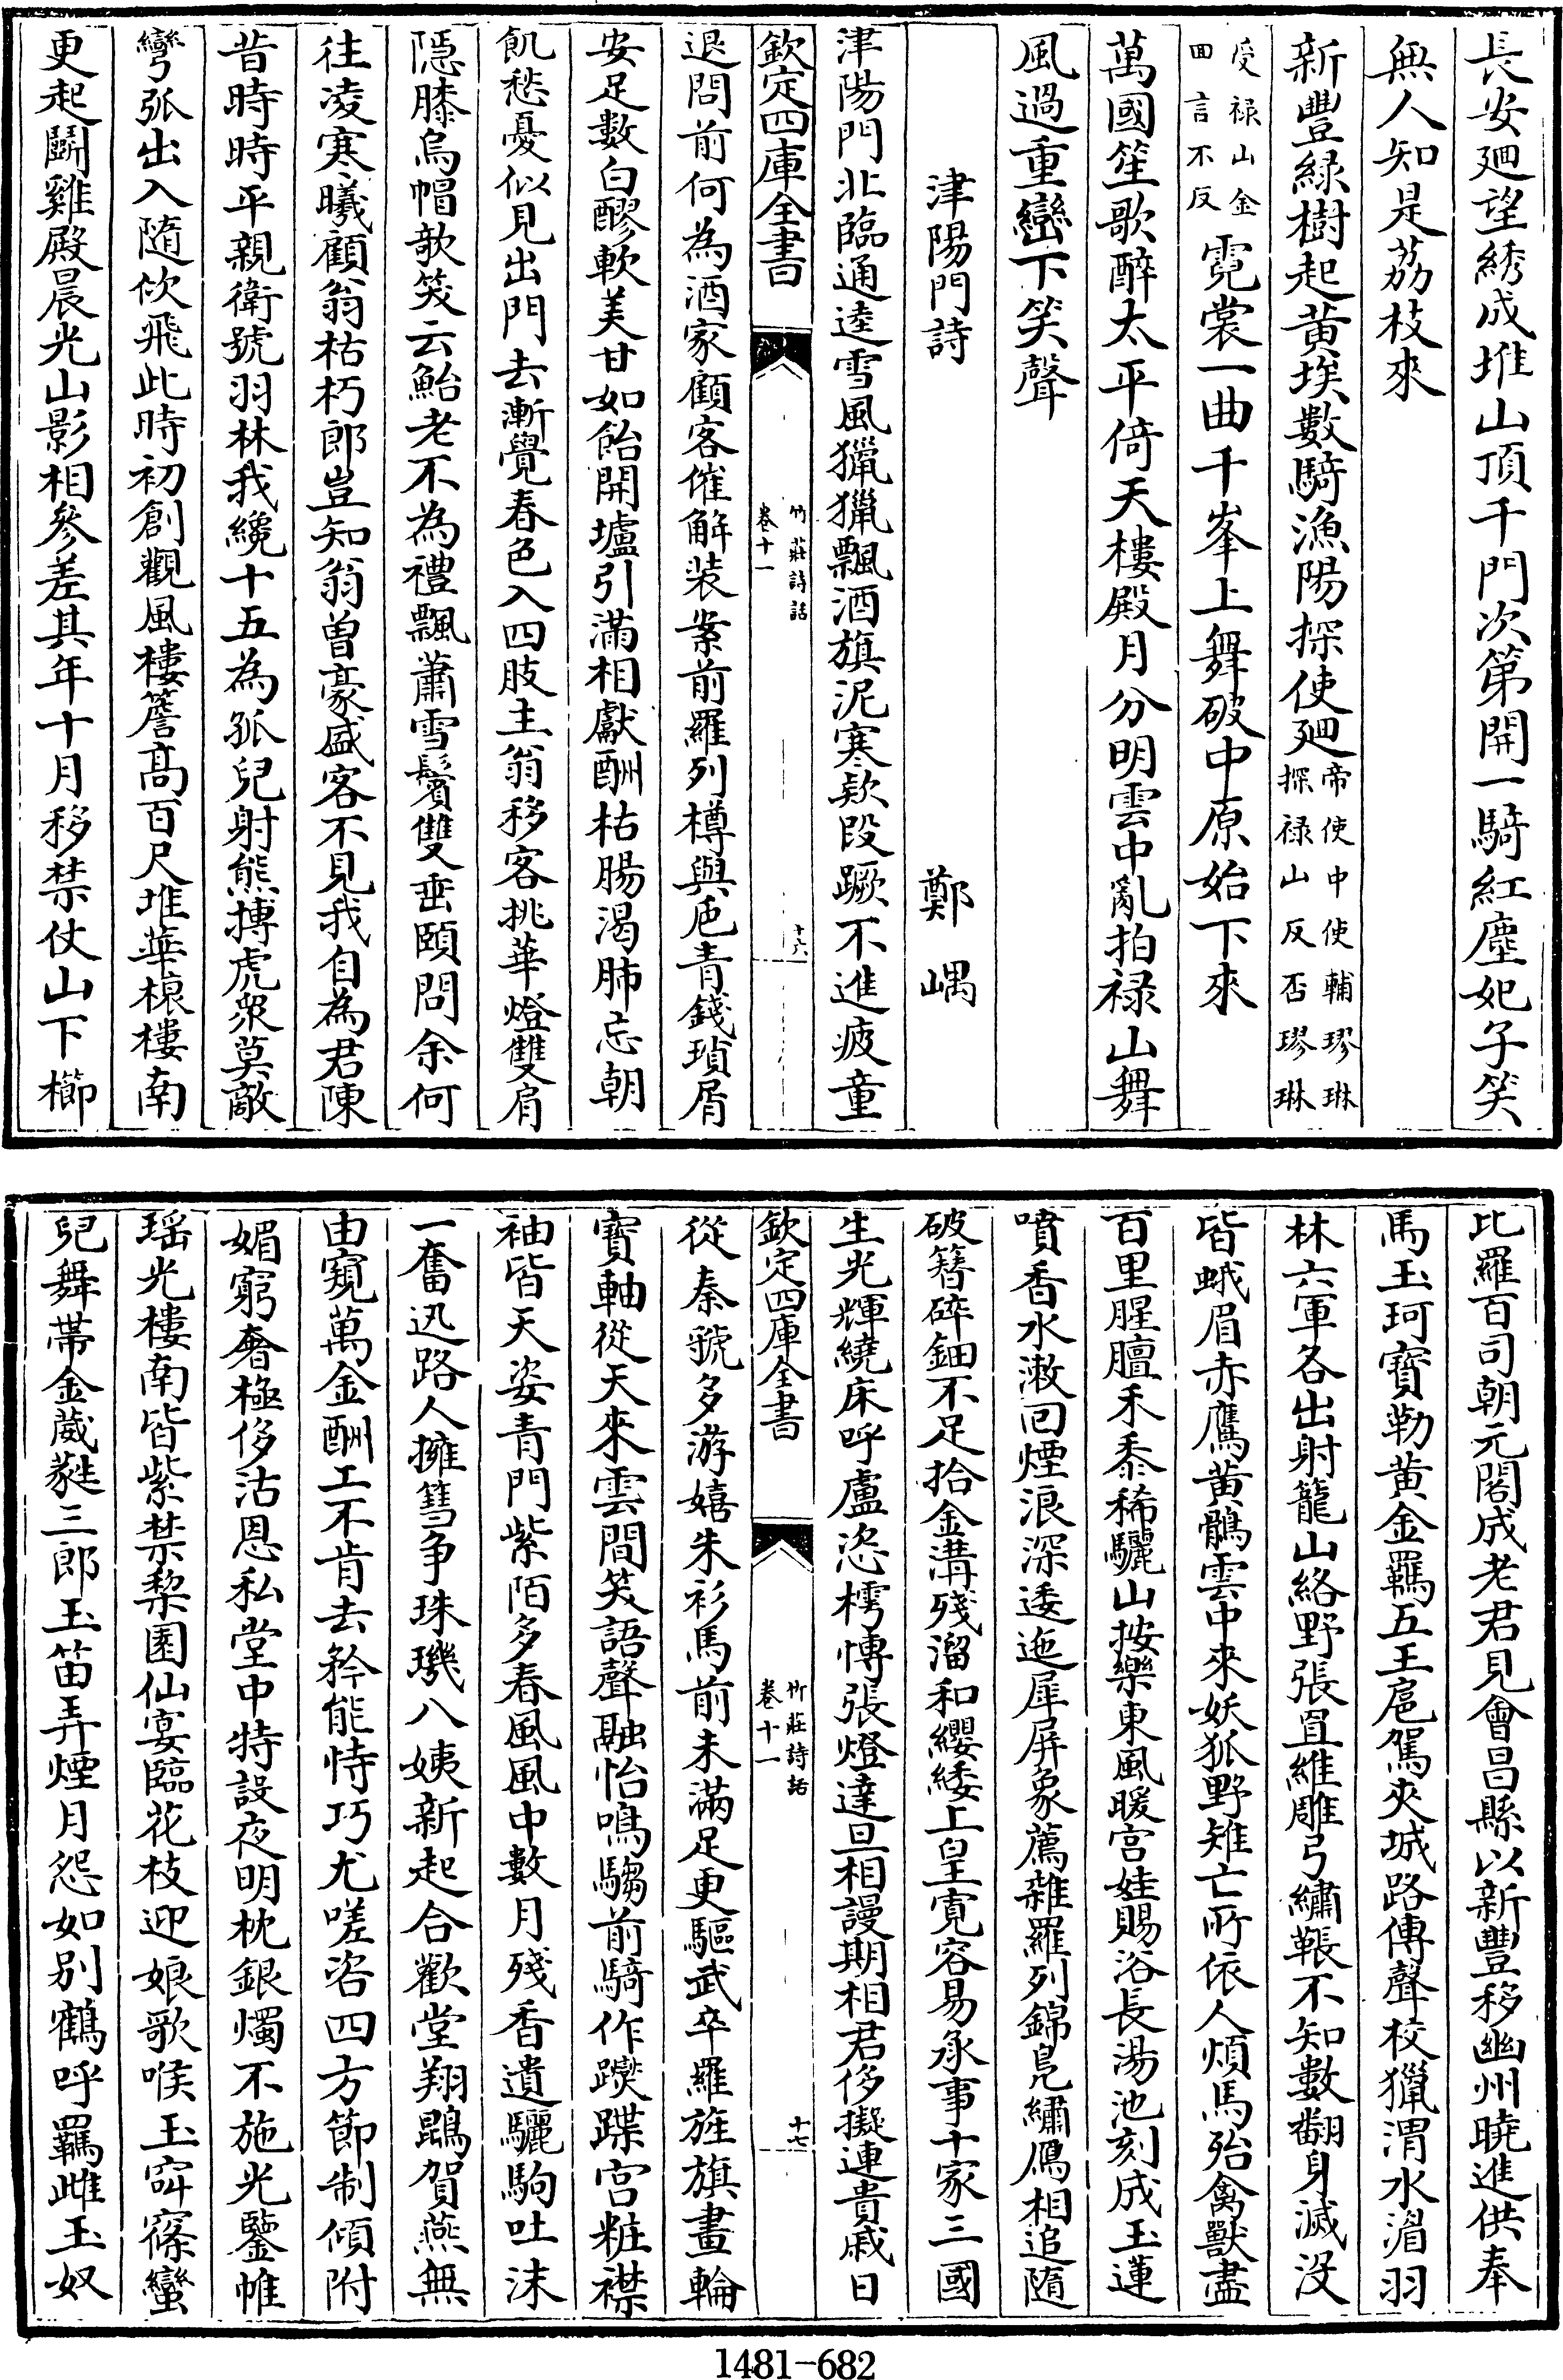 長安廻望綉成堆山頂千門次第開一騎紅塵妃子笑
無人知是茘枝來
新豐緑樹起黄埃數騎漁陽探使廻帝使中使輔璆琳
探禄山反否璆琳
受禄山金
回言不反霓裳一曲千峯上舞破中原始下來
萬國笙歌醉太平倚天樓殿月分明雲中亂拍禄山舞
風過重巒下笑聲
津陽門詩 鄭嵎
津陽門北臨通逵雪風獵獵飄酒旗泥寒款段蹶不進疲童
欽定四庫全書 竹莊詩話 卷十一 十六
退問前何為酒家顧客催解装案前羅列樽與巵青錢瑣屑
安足數白醪軟美甘如飴開壚引滿相獻酬枯腸渴肺忘朝
飢愁憂似見出門去漸覺春色入四肢主翁移客挑華燈雙肩
隠膝烏帽欹笑云鮐老不為禮飄蕭雪鬢雙垂頤問余何
往凌寒曦顧翁枯朽郎豈知翁曽豪盛客不見我自為君陳
昔時時平親衛號羽林我纔十五為孤兒射熊搏虎衆莫敵
彎弧出入隨佽飛此時初創觀風樓簷髙百尺堆華榱樓南
更起鬭雞殿晨光山影相參差其年十月移禁仗山下櫛
比羅百司朝元閣成老君見會昌縣以新豐移幽州曉進供奉
馬玉珂寳勒黄金羈五王扈駕夾城路傳聲校獵渭水湄羽
林六軍各出射籠山絡野張罝維雕弓繡韔不知數翻身滅没
皆蛾眉赤鷹黄鶻雲中來妖狐野雉亡所依人煩馬殆禽獸盡
百里腥膻禾黍稀驪山按樂東風暖宫娃賜浴長湯池刻成玉蓮
噴香水漱回煙浪深逶迤犀屏象薦雜羅列錦鳬繡鴈相追隨
破簪碎鈿不足拾金溝殘溜和纓緌上皇寛容易承事十家三國
生光輝繞床呼盧恣樗愽張燈達旦相謾期相君侈擬連貴戚日
欽定四庫全書 竹莊詩話 卷十一 十七
從秦虢多游嬉朱衫馬前未滿足更驅武卒羅旌旗畫輪
寳軸從天來雲間笑語聲融怡鳴騶前騎作躞蹀宫粧襟
袖皆天姿青門紫陌多春風風中數月殘香遺驪駒吐沫
一奮迅路人擁篲争珠璣八姨新起合歡堂翔鵾賀燕無
由窺萬金酬工不肯去矜能恃巧尤嗟咨四方節制傾附
媚窮奢極侈沽恩私堂中特設夜明枕銀燭不施光鑒帷
瑶光樓南皆紫禁棃園仙宴臨花枝迎娘歌喉玉窅窱蠻
兒舞帶金葳蕤三郎玉笛弄煙月怨如别鶴呼羈雌玉奴
1481-682